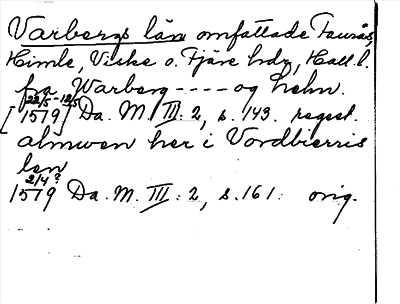 Varbergs län omfattade Faurås,
Himle, Viske o. Fjäre hdr, Hall. l.
fra Warberg ---- og Lehn.
22/5 - 12/5
[1579] Da. M. III: 2, s. 143. regest.
almwen her i Vordbierris
len
2/4 ?
1579 Da. M. III: 2, s. 161. orig.